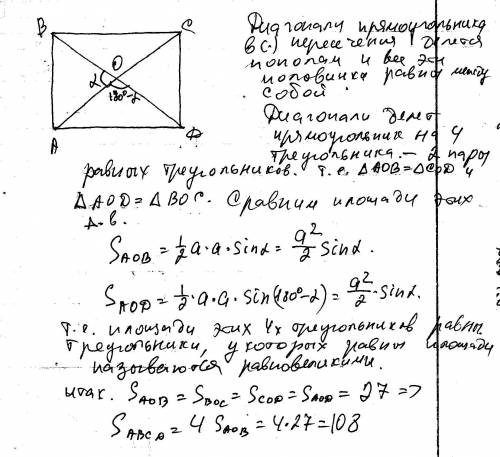 B
C
O
α
180°-α
A
D
Диагонали прямоугольника
в (.) пересечения делятся
пополам и все эти
половинки равны между
собой.
Диагонали делят
прямоугольник на 4
треугольника. - 2 пары
равных треугольников. т.е. ΔAOB=ΔCOD и
ΔAOD=ΔBOC. Сравним площади этих
Δ-в.
S_AOB = 1/2 a·a·sinα = a²/2 sinα.
S_AOD = 1/2·a·a·sin(180°-α) = a²/2·sinα.
т.е. площади этих 4х треугольников равны
треугольники, у которых равны площади
называются равновеликими.
итак. S_AOB = S_BOC = S_COD = S_AOD = 27 =>
S_ABCD = 4 S_AOB = 4·27 = 108